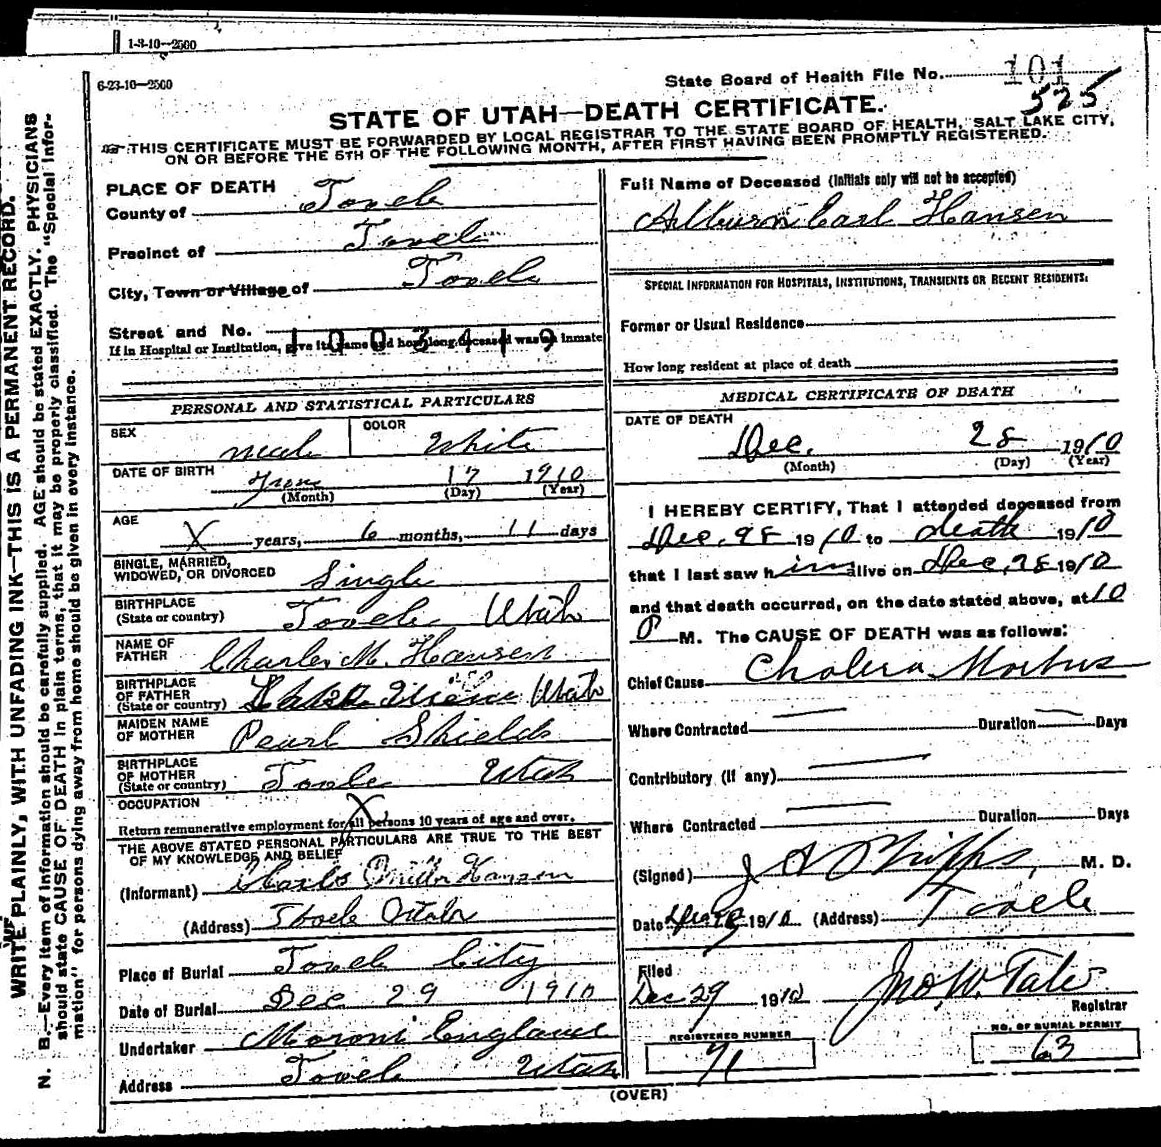 1-8-10--2500
6-23-10--2500
State Board of Health File No. 101
525
STATE OF UTAH—DEATH CERTIFICATE.
THIS CERTIFICATE MUST BE FORWARDED BY LOCAL REGISTRAR TO THE STATE BOARD OF HEALTH, SALT LAKE CITY,
ON OR BEFORE THE 5TH OF THE FOLLOWING MONTH, AFTER FIRST HAVING BEEN PROMPTLY REGISTERED.
WRITE PLAINLY, WITH UNFADING INK—THIS IS A PERMANENT RECORD.
N. B.—Every item of information should be carefully supplied. AGE should be stated EXACTLY. PHYSICIANS
should state CAUSE OF DEATH in plain terms, that it may be properly classified. The "Special Infor-
mation" for persons dying away from home should be given in every instance.
PLACE OF DEATH
County of Tooele
Precinct of Tooele
City, Town or Village of Tooele
Street and No.
1003419
If in Hospital or Institution, give its name and how long deceased was an inmate
PERSONAL AND STATISTICAL PARTICULARS
SEX male COLOR White
DATE OF BIRTH June 17 1910
(Month) (Day) (Year)
AGE X years, 6 months, 11 days
SINGLE, MARRIED,
WIDOWED, OR DIVORCED Single
BIRTHPLACE
(State or country) Tooele Utah
NAME OF
FATHER Charles M. Hansen
BIRTHPLACE
OF FATHER
(State or country) Utah
MAIDEN NAME
OF MOTHER Pearl Shields
BIRTHPLACE
OF MOTHER
(State or country) Tooele Utah
OCCUPATION X
Return remunerative employment for all persons 10 years of age and over.
THE ABOVE STATED PERSONAL PARTICULARS ARE TRUE TO THE BEST
OF MY KNOWLEDGE AND BELIEF
(Informant) Charles Miller Hansen
(Address) Tooele Utah
Place of Burial Tooele City
Date of Burial Dec 29 1910
Undertaker Moroni England
Address Tooele Utah
Full Name of Deceased (Initials only will not be accepted)
Alburn Earl Hansen
SPECIAL INFORMATION FOR HOSPITALS, INSTITUTIONS, TRANSIENTS OR RECENT RESIDENTS:
Former or Usual Residence
How long resident at place of death
MEDICAL CERTIFICATE OF DEATH
DATE OF DEATH
Dec. 28 1910
(Month) (Day) (Year)
I HEREBY CERTIFY, That I attended deceased from
Dec. 28 1910 to death 1910
that I last saw him alive on Dec. 28 1910
and that death occurred, on the date stated above, at 10
P M. The CAUSE OF DEATH was as follows:
Chief Cause Cholera Morbus
Where Contracted — Duration — Days
Contributory (if any) —
Where Contracted — Duration Days
(Signed) J A Phipps, M. D.
Date 1910 (Address) Tooele
Filed
Dec 29 1910 Jno. W. Tate
Registrar
REGISTERED NUMBER
71
NO. OF BURIAL PERMIT
63
(OVER)